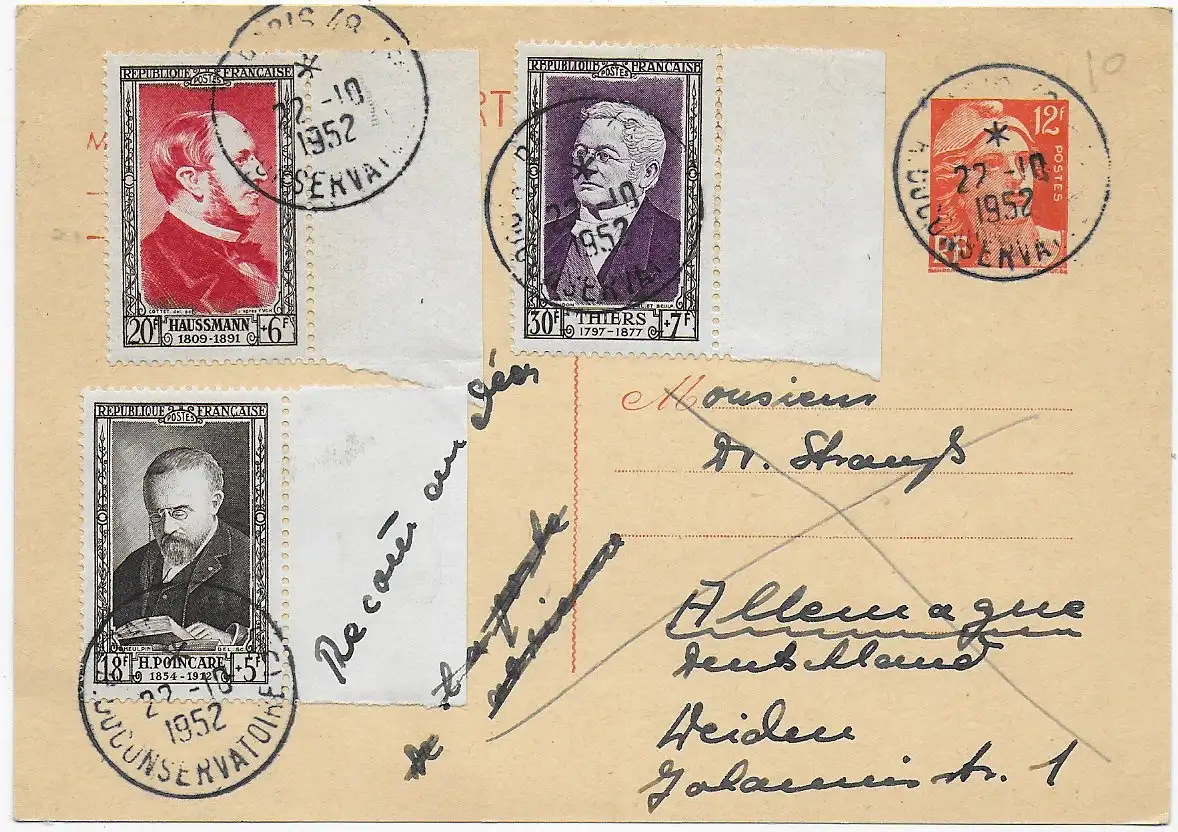 REPUBLIQUE FRANÇAISE
POSTES
20F HAUSSMANN +6F
1809-1891
PARIS 48
22 -10
1952
REPUBLIQUE FRANÇAISE
POSTES
30F THIERS +7F
1797-1877
22 -10
1952
12F
POSTES
22 -10
1952
R. DU CONSERVA
REPUBLIQUE FRANÇAISE
POSTES
18F H. POINCARÉ +5F
1854-1912
22 -10
1952
DU CONSERVATOIRE
10
Monsieur
Dr. Strauß
Allemagne
Deutschland
Weiden
Johannis str. 1